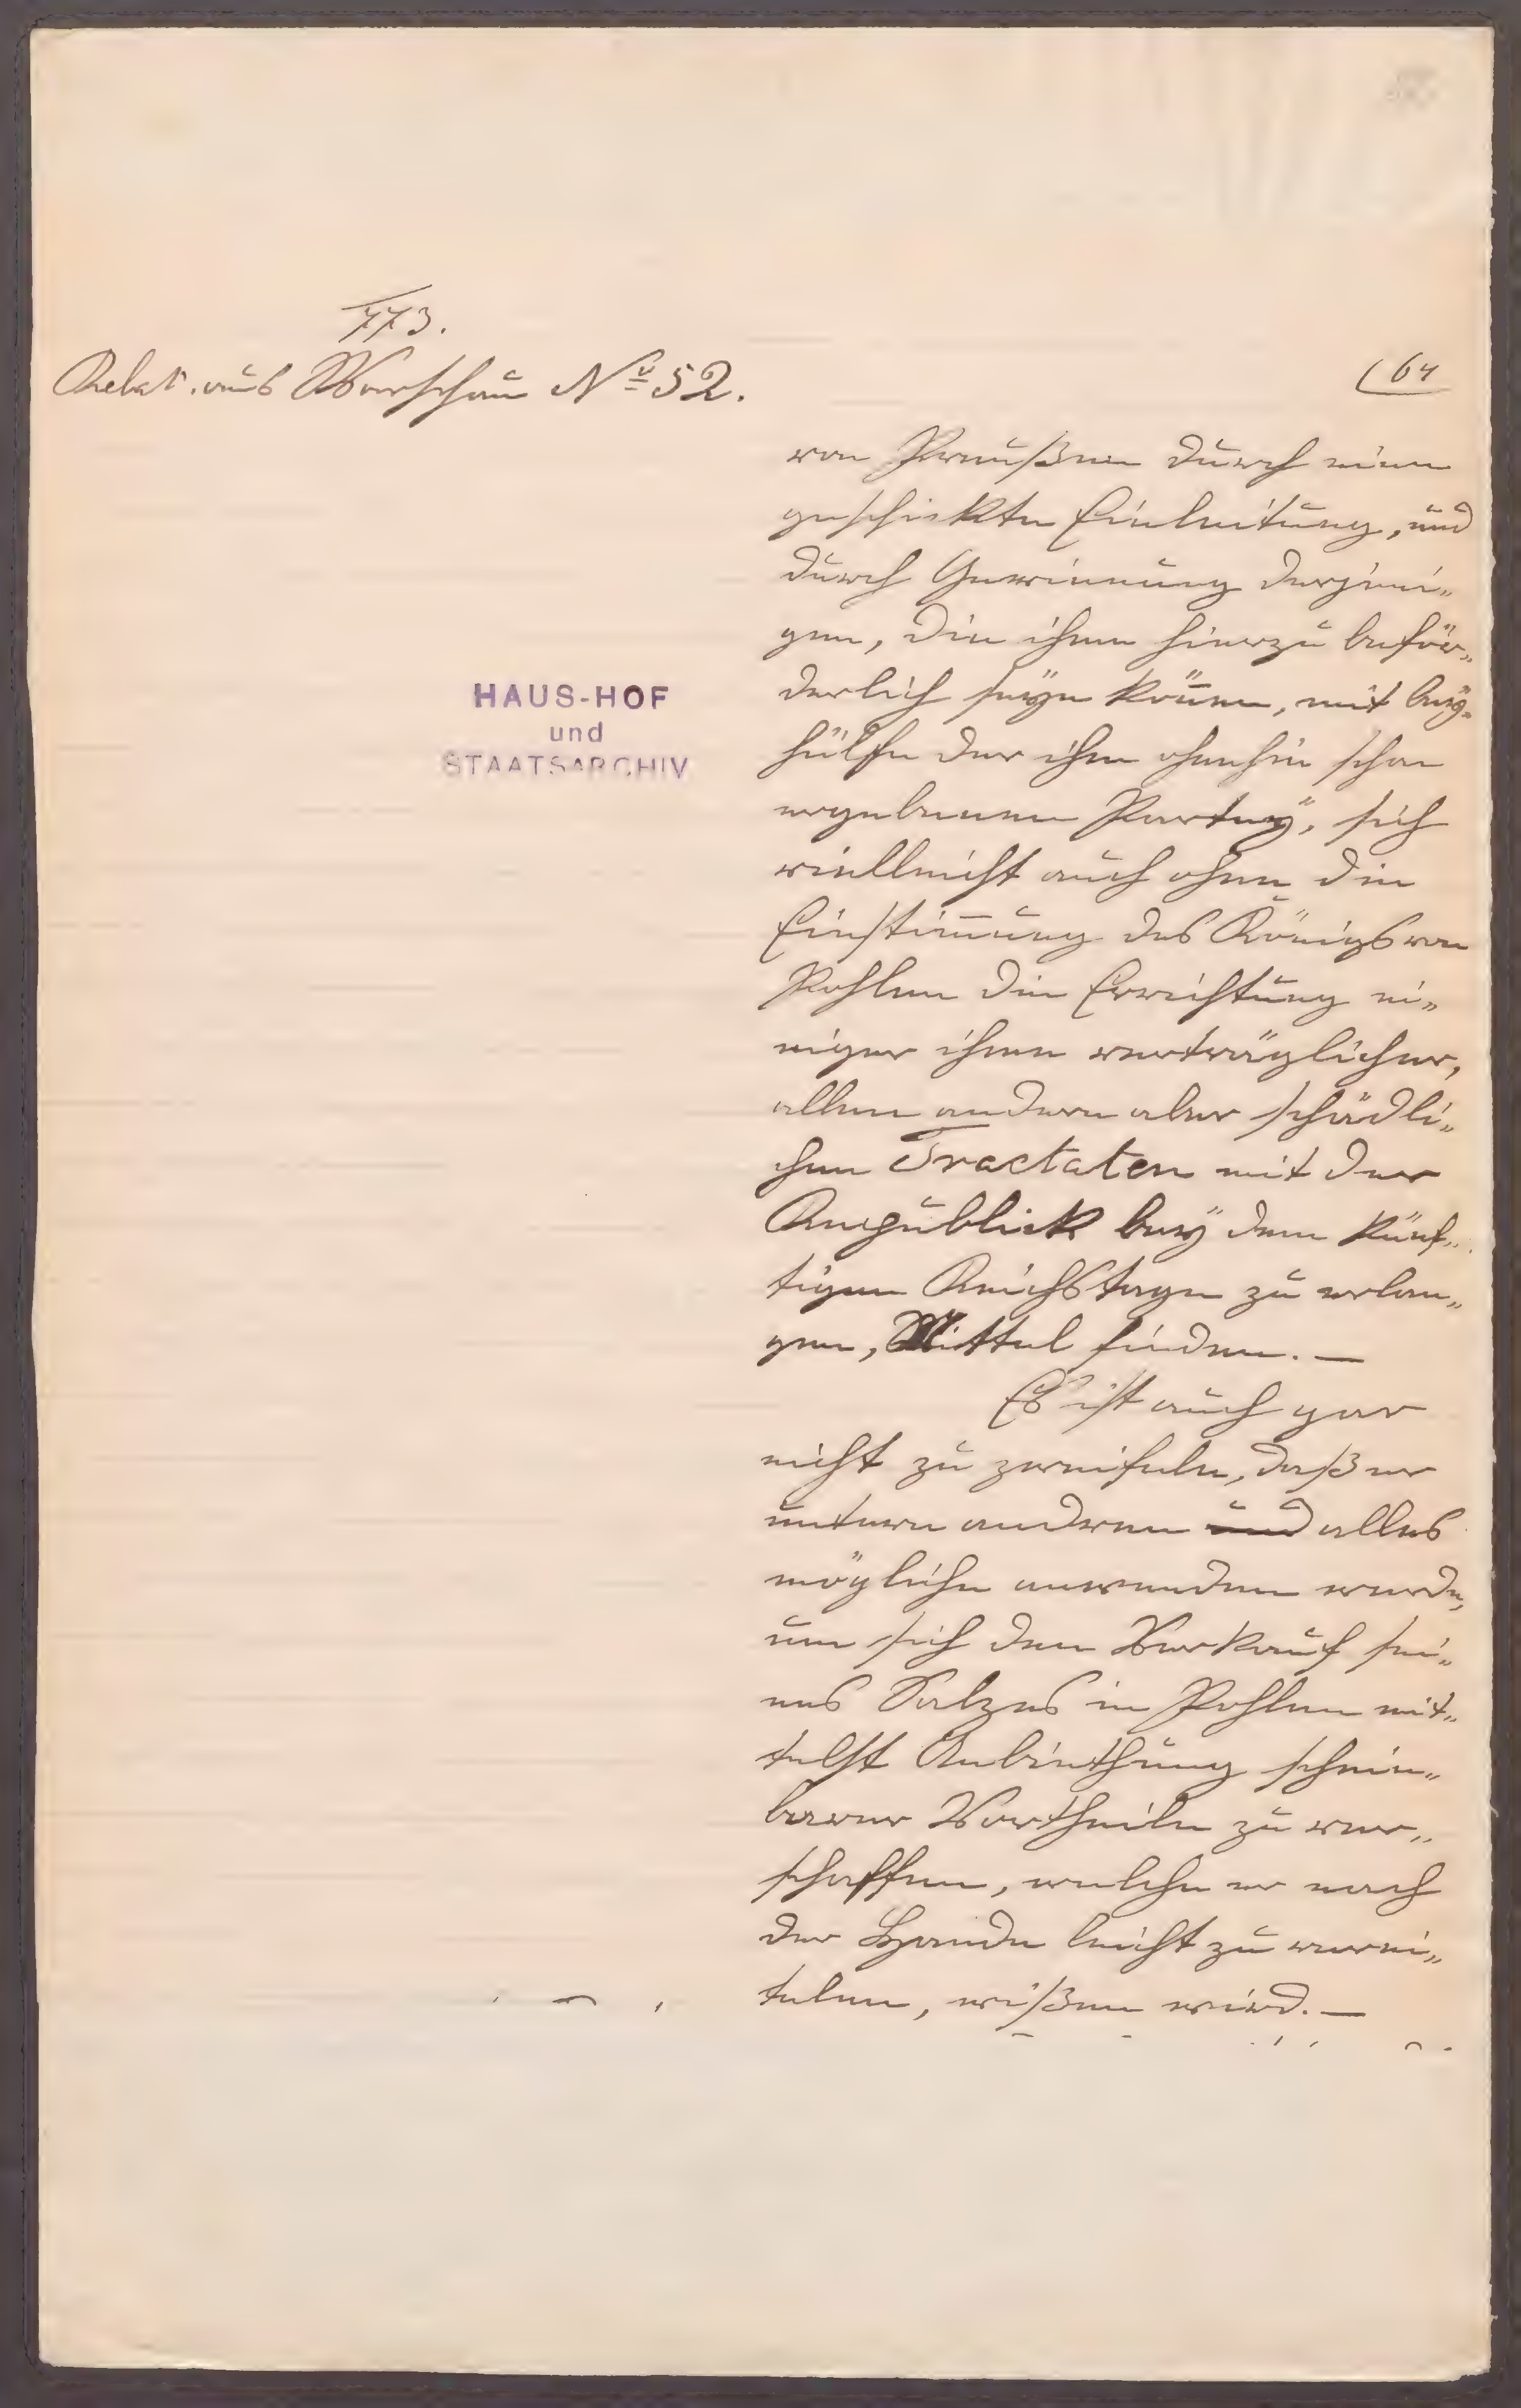 773.
Relat. aus Warschau No 52.
64
HAUS-HOF
und
STAATSARCHIV
von Preußen durch eine
geschickte Einleitung, und
durch Gewinnung derjeni„
gen, die ihme hierzu beför„
derlich seÿn köñen, mit beÿ„
hülfe der ihm ohnehin schon
ergebenen Parteÿ, sich
vielleicht auch ohne die
Einstim̄ung des Königs von
Pohlen die Errichtung ei„
niger ihme verträglicher,
allen andern aber schädli„
chen Tractaten mit der
Republick beÿ dem künf„
tigen Reichstage zu erlan„
gen, Mittel finden. —
Es ist auch gar
nicht zu zweifeln, daß er
untern andren und alles
mögliche anwenden werde,
um sich den Verkauf sei„
nes Salzes in Pohlen mit„
telst Anbiethung schein„
barer Vortheile zu ver„
schaffen, welche er nach
der Hande leicht zu verei„
telen, wißen wird. —